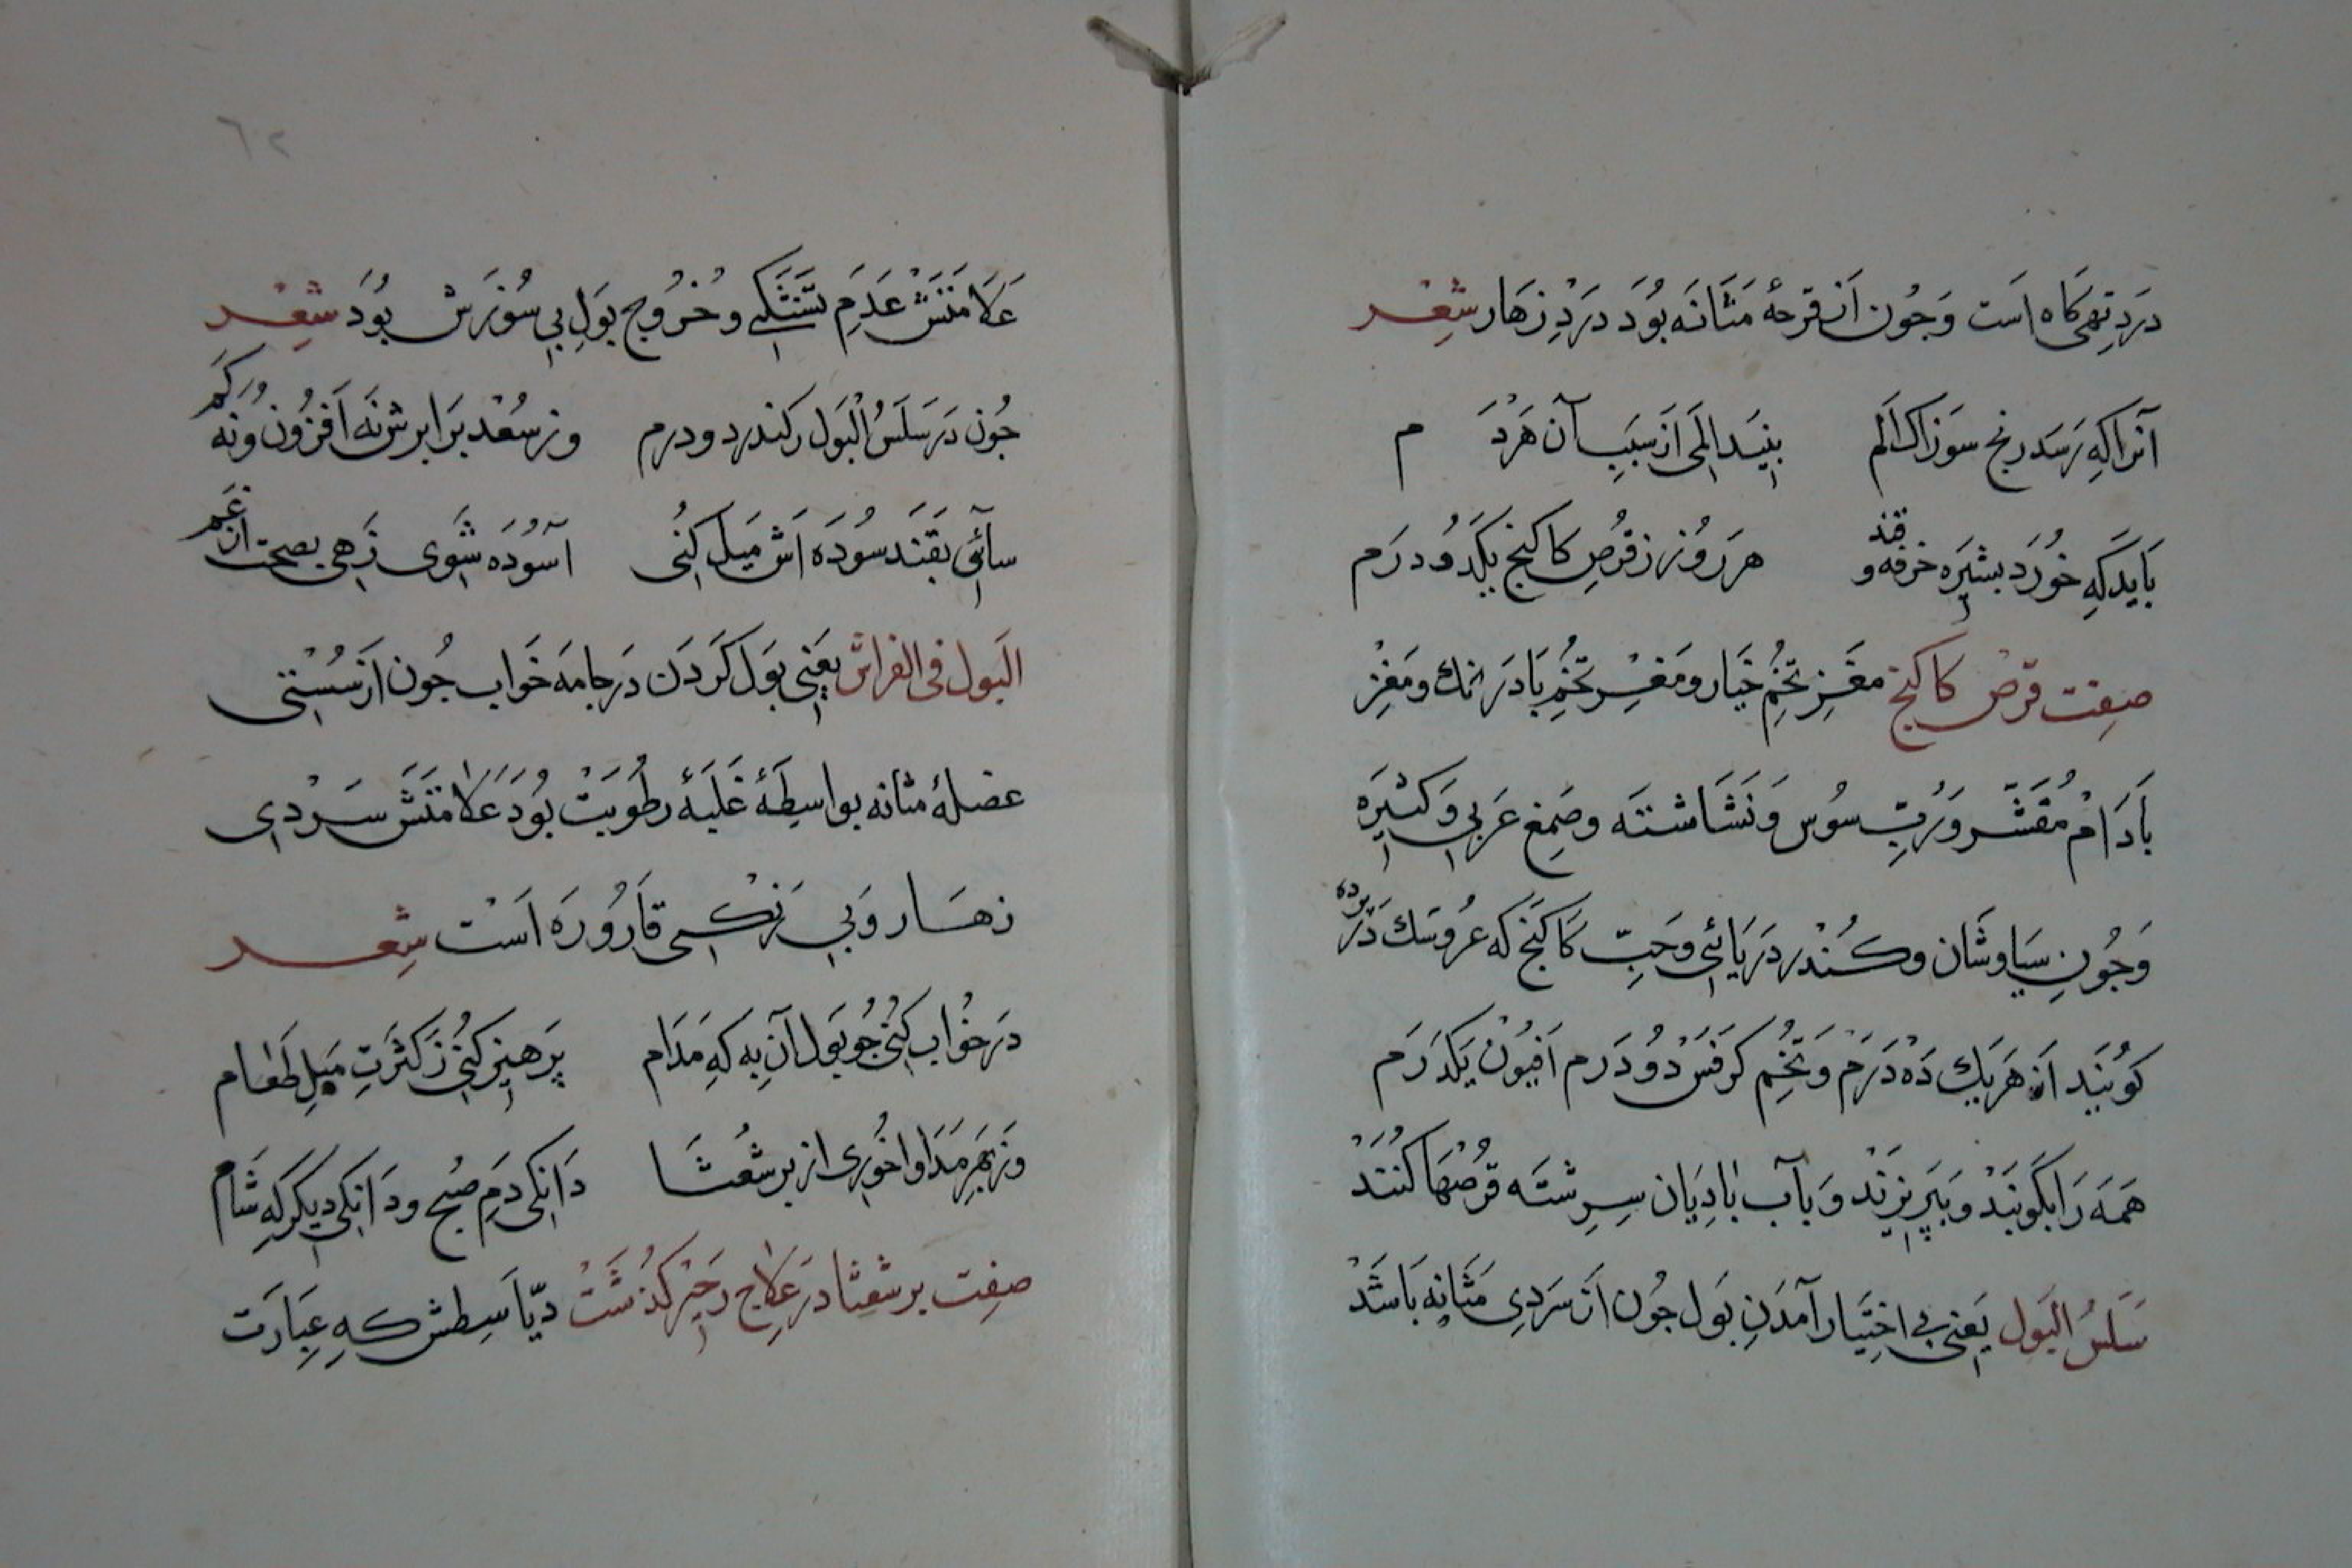 دَردِ تهی کاه است وَجُون از قرحهٔ مَثَانَه بُوَد دَردِ زهَار شِعْر
آنرا که رَسَد رنج سوزاک اَلَم بیند المی از سَبَبِ آن هَرْدَم
بَاید که خورَد بشیرَه خرفه و قند هر روُز ز قرُصِ کاکنج یکدُو درَم
صِفت قرص کاکنج مغزِ تخُمِ خیَار و مَغزِ تخُمِ بَادرَنک و مَغزِ
بَادَام مُقَشَّر و رُبِّ سوُس و نَشَاشته وصَمِغ عَرَبی وَ کثیَره
وَخوُنِ سیَاوشَان و کُندر دَریَائی وحَبِّ کَاکنج که عرُوسک دَر پرده
کوُیَند از هَریَک دَه دَرَم وَ تخُم کرَفسْ دوُ دَرم اَفیوُن یکدَرَم
هَمَه رَا بکوُبَند وَ ببَیزَند وَ بآب بادیَان سِرِشتَه قُرصْهَا کُنند
سَلَسُ البَول یَعنی بی اختیَار آمَدَنِ بَول جوُن از سَردیِ مَثَانه بَاشَد
٦٢
عَلَامَتَش عَدَمِ تشَنَکی و خُرُوج بَولِ بی سوُزش بُوَد شِعْر
جُون دَر سَلَسُ الْبَول ز کندر دو درم وز سُعد بَرابرش نَه اَفزوُن و نَه کَم
سائی بقَند سوُدَه اَش میَل کنی آسوُدَه شَوی زَهی بصحت از غم
البَول فی الفراش یعَنی بَول کَردَن دَر جامَه خَواب جُون از سُستی
عضلهٔ مثانه بواسِطَهٔ غَلَبَهٔ رطُوبَت بوُدَ عَلامَتَش سَردی
زهَار وَ بی رَنکی قَارُورَه اَست شِعر
دَر خوُاب کنی جُو بَول آن بِه که مَدَام پَرهیز کنی ز کثرَتِ مَیلِ طَعَام
وز بَهَرِ مَدَاوا خوُری از برشعُثَا دَانکی دَمِ صُبح و دَانکی دیکر که شَام
صِفت برشعثا دَر علاج زحیر کذشت دیّاسِطش که عِبَارَت